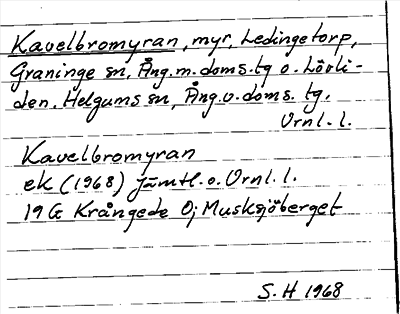 Kavelbromyran, myr, Ledingetorp,
Graninge sn, Ång.m.doms.tg o. Lövli-
den, Helgums sn, Ång.v.doms. tg.
Vrnl. l.
Kavelbromyran
ek (1968) Jämtl. o. Vrnl. l.
19 G Krångede Oj Musksjöberget
S. H 1968